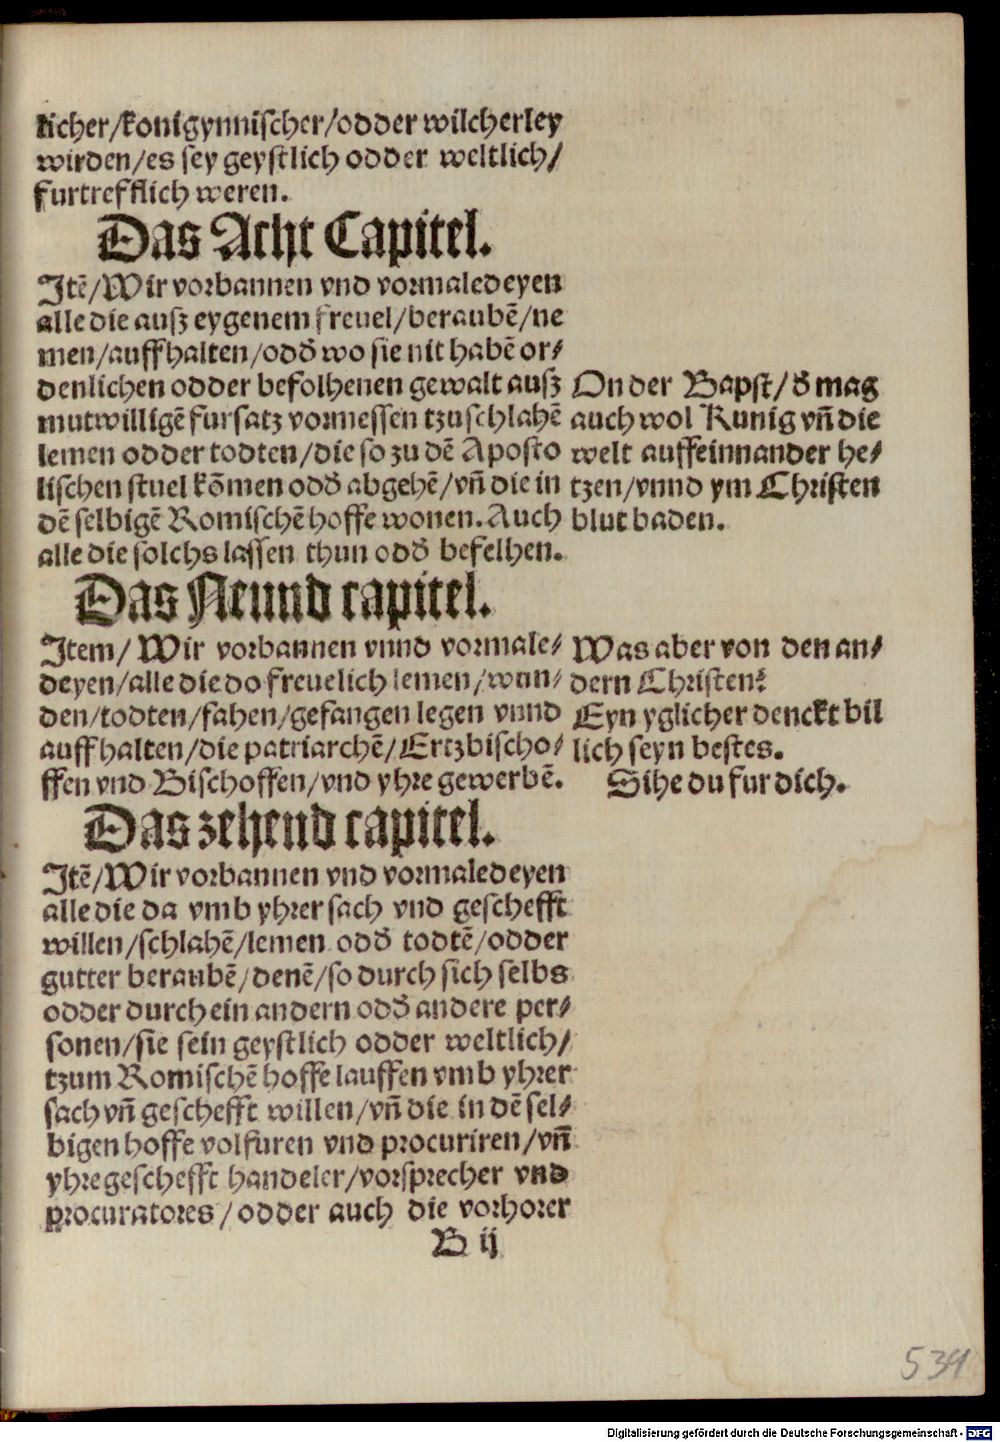 licher/konigynnischer/odder wilcherley
wirden/es sey geystlich odder weltlich/
furtrefflich weren.
Das Acht Capitel.
Jtẽ/Wir vorbannen vnd vormaledeyen
alle die auſz eygenem freuel/beraubẽ/ne
men/auffhalten/odð wo sie nit habẽ or⸗
denlichen odder befolhenen gewalt auſz
mutwilligẽ fursatz vormessen tzuschlahẽ
lemen odder todten/die so zu dẽ Aposto
lischen stuel kõmen odð abgehẽ/vñ die in
dẽ selbigẽ Romischẽ hoffe wonen. Auch
alle die solchs lassen thun odð befelhen.
On der Bapst/ð mag
auch wol Kunig vñ die
welt auffeinnander he⸗
tzen/vnnd ym Christen
blut baden.
Das Neund capitel.
Jtem/ Wir vorbannen vnnd vormale⸗
deyen/alle die do freuelich lemen/wun⸗
den/todten/fahen/gefangen legen vnnd
auffhalten/die patriarchẽ/Ertzbischo⸗
ffen vnd Bischoffen/vnd yhre gewerbẽ.
Was aber von den an⸗
dern Christen?
Eyn yglicher denckt bil
lich seyn bestes.
Sihe du fur dich.
Das zehend capitel.
Jtẽ/Wir vorbannen vnd vormaledeyen
alle die da vmb yhrer sach vnd geschefft
willen/schlahẽ/lemen odð todtẽ/odder
gutter beraubẽ/denẽ/so durch sich selbs
odder durch ein andern odð andere per⸗
sonen/sie sein geystlich odder weltlich/
tzum Romischẽ hoffe lauffen vmb yhrer
sach vñ geschefft willen/vñ die in dẽ sel⸗
bigen hoffe volfuren vnd procuriren/vñ
yhre geschefft handeler/vorsprecher vnd
procuratores/odder auch die vorhorer
B ij
534
Digitalisierung gefördert durch die Deutsche Forschungsgemeinschaft - DFG